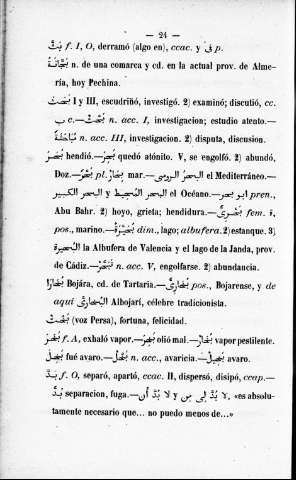 — 24 —
بَثَّ f. I, O, derramó (algo en), ccac. y فى p.
بَجَّانَة n. de una comarca y cd. en la actual prov. de Alme-
ría, hoy Pechina.
بَحَثَ I y III, escudriñó, investigó. 2) examinó; discutió, cc.
ب c.—بَحْث n. acc. I, investigacion; estudio atento.—
مُبَاحَثَة n. acc. III, investigacion. 2) disputa, discusion.
بَحَرَ hendió.—بَحِرَ quedó atónito. V, se engolfó. 2) abundó,
Doz.—بَحْر pl. بحار mar.—البحر الرومى el Mediterráneo.—
البحر المحيط y البحر الكبير el Océano.—ابو بحر pren.,
Abu Bahr. 2) hoyo, grieta; hendidura.—بَحْرِىّ fem. ة,
pos., marino.—بُحَيْرَة dim., lago; albufera. 2) estanque. 3)
البحيرة la Albufera de Valencia y el lago de la Janda, prov.
de Cádiz.—تَبَحُّر n. acc. V, engolfarse. 2) abundancia.
بخارا Bojára, cd. de Tartaria.—بخارىّ pos., Bojarense, y de
aquí البخارى Albojarí, célebre tradicionista.
بَخْت (voz Persa), fortuna, felicidad.
بَخَرَ f. A, exhaló vapor.—بَخِرَ olió mal.—بُخَار vapor pestilente.
بَخِلَ fué avaro.—بُخْل n. acc., avaricia.—بَخِيل avaro.
بَدَّ f. O, separó, apartó, ccac. II, dispersó, disipó, ccap.—
بُدّ separacion, fuga.—لا بُدَّ أن y لا بُدَّ لى من, «es absolu-
tamente necesario que... no puedo menos de...»